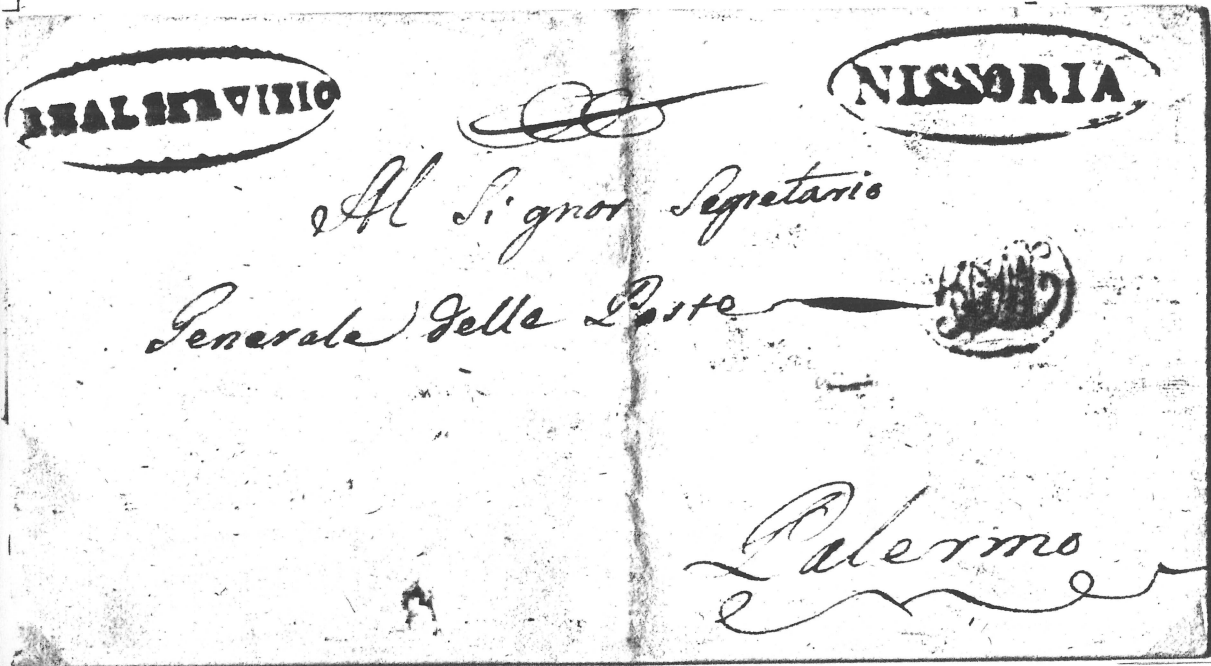 REAL SERVIZIO
NISSORIA
Al Signor Segretario
Generale delle Poste
Palermo